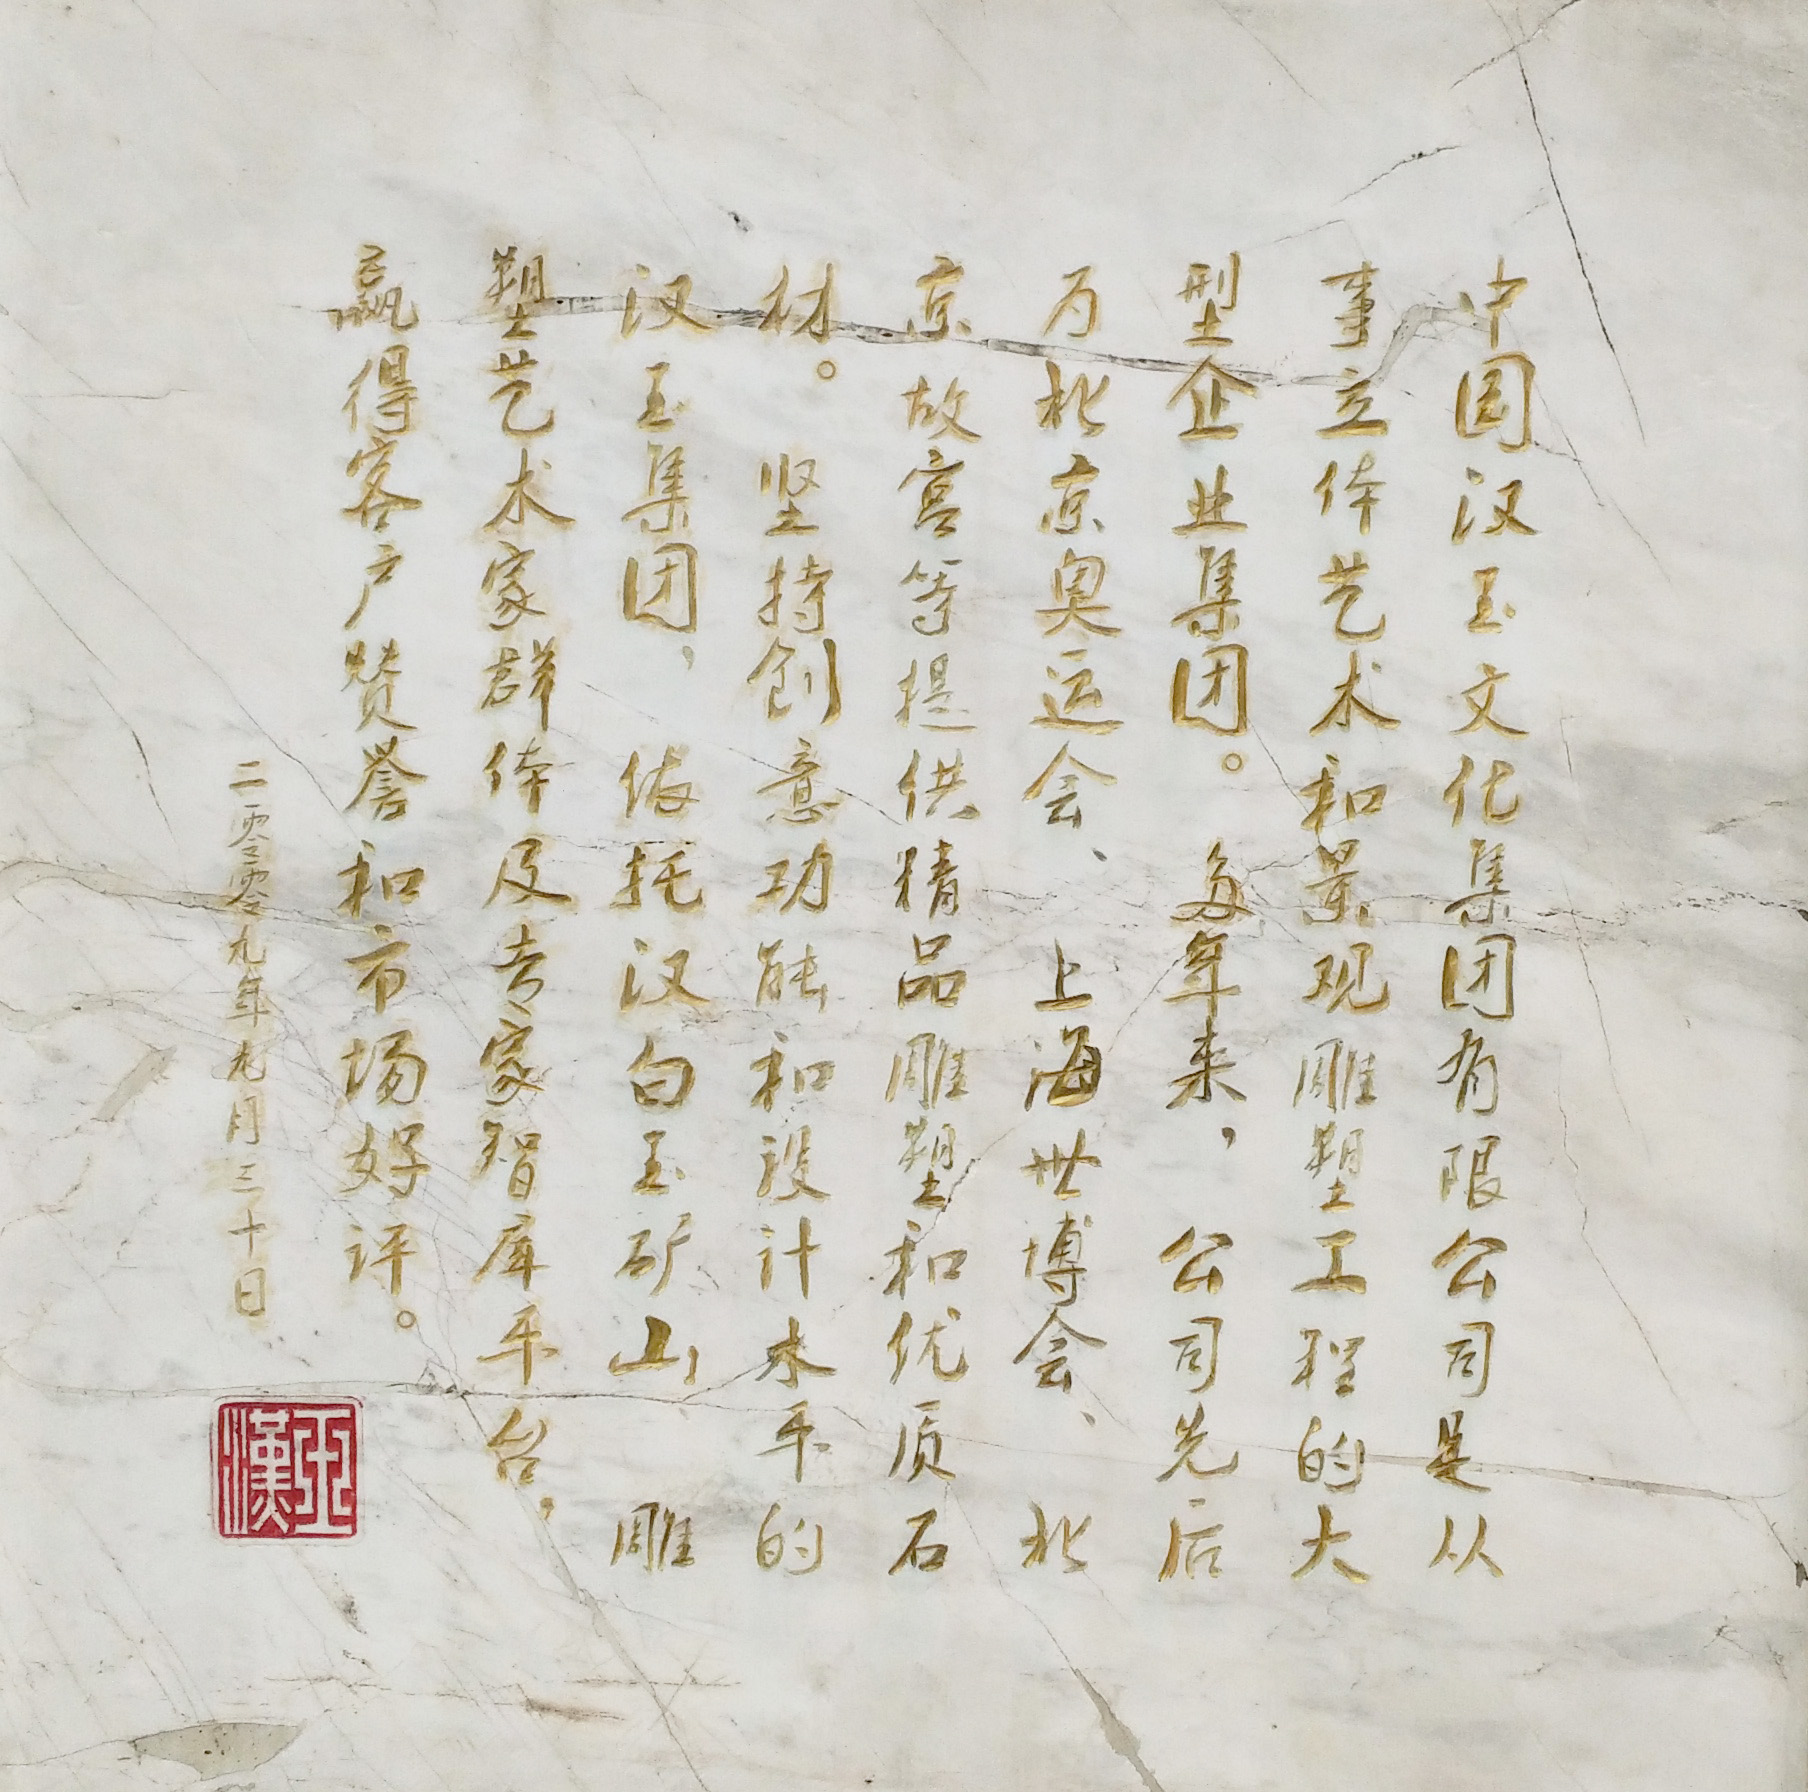 中国汉玉文化集团有限公司是从
事立体艺术和景观雕塑工程的大
型企业集团。多年来，公司先后
为北京奥运会、上海世博会、北
京故宫等提供精品雕塑和优质石
材。坚持创意功能和设计水平的
汉玉集团、依托汉白玉矿山 雕
塑艺术家群体及专家智库平台，
赢得客户赞誉和市场好评。
二零零九年九月三十日
漢玉